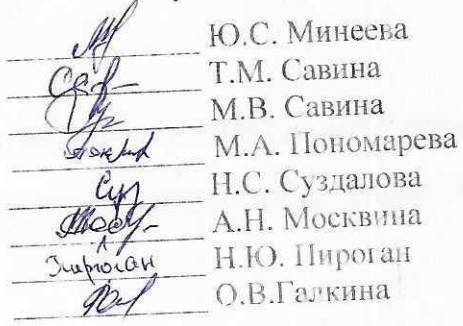 Ю.С. Минеева
Т.М. Савина
М.В. Савина
М.А. Пономарева
Н.С. Суздалова
А.Н. Москвина
Н.Ю. Пироган
О.В.Галкина